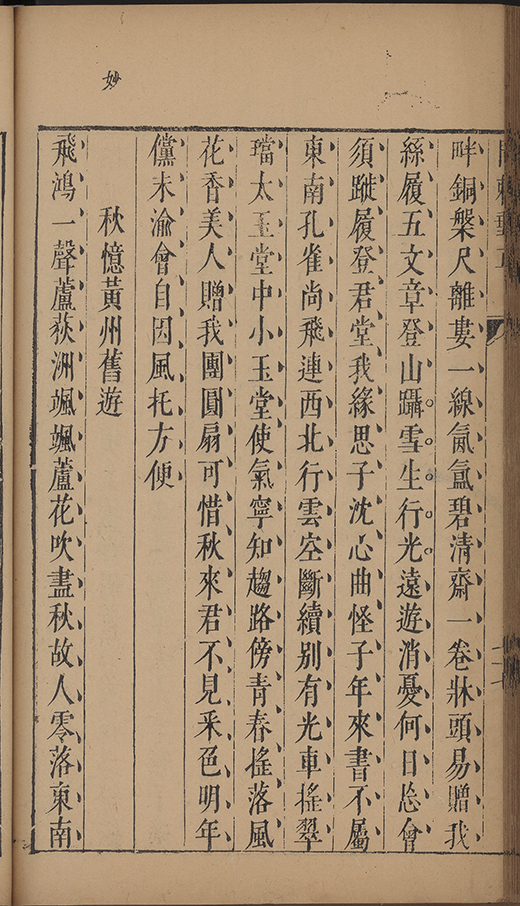 妙
畔銅槃尺離婁一線氤氳碧清齋一卷牀頭易贈我
絲履五文章登山躡雪生行光遠遊消憂何日忘會
須蹝履登君堂我緣思子沈心曲怪子年來書不屬
東南孔雀尚飛連西北行雲空斷續别有光車搖翠
璫太玉堂中小玉堂使氣寧知趨路傍青春搖落風
花香美人贈我團圓扇可惜秋來君不見采色明年
儻未渝會自因風托方便
秋憶黃州舊遊
飛鴻一聲蘆荻洲颯颯蘆花吹盡秋故人零落東南